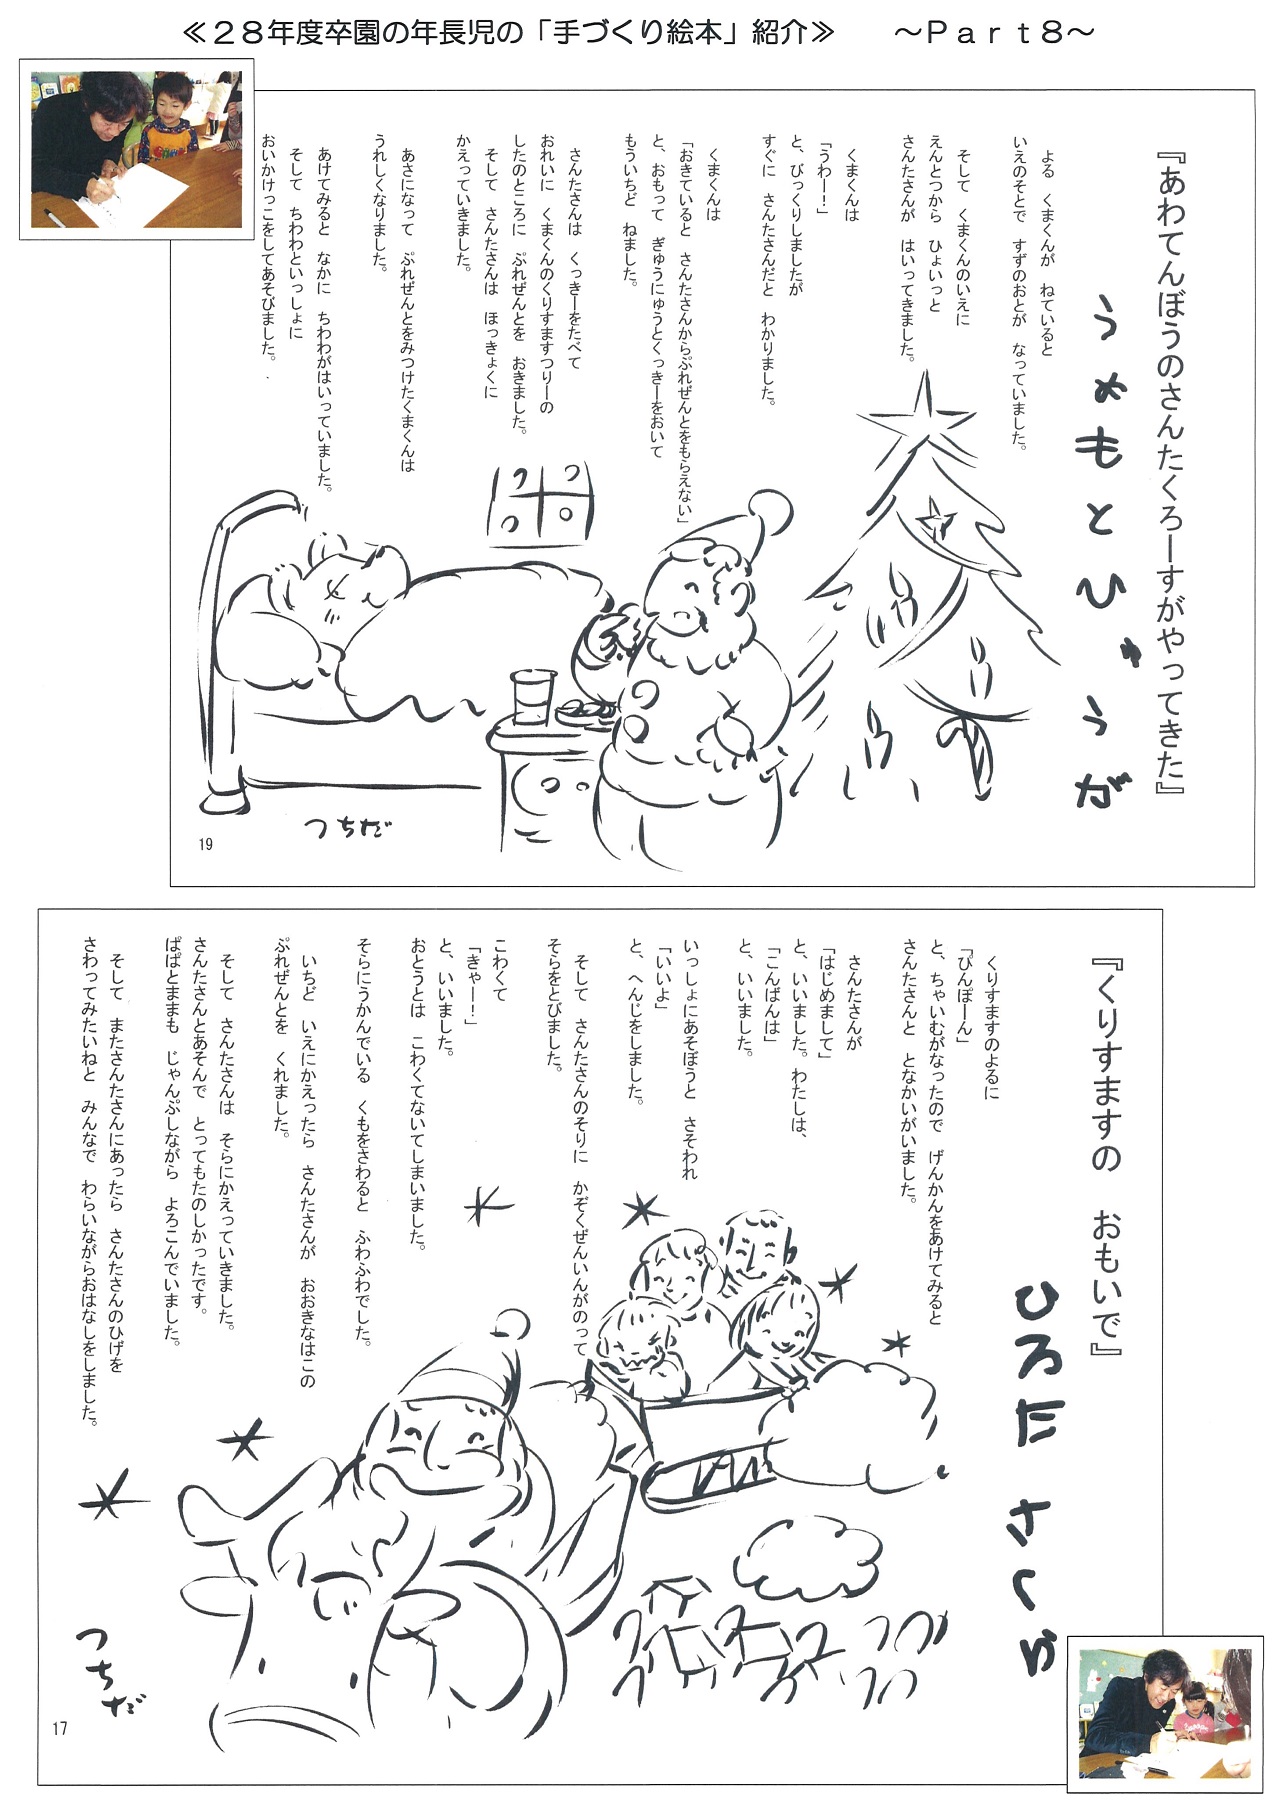 ≪２８年度卒園の年長児の「手づくり絵本」紹介≫　～Ｐａｒｔ８～
『あわてんぼうのさんたくろーすがやってきた』
うめもとひゅうが
よる　くまくんが　ねていると
いえのそとで　すずのおとが　なっていました。
そして　くまくんのいえに
えんとつから　ひょいっと
さんたさんが　はいってきました。
くまくんは
「うわー！」
と、びっくりしましたが
すぐに　さんたさんだと　わかりました。
くまくんは
「おきていると　さんたさんからぷれぜんとをもらえない」
と、おもって　ぎゅうにゅうとくっきーをおいて
もういちど　ねました。
さんたさんは　くっきーをたべて
おれいに　くまくんのくりすますつりーの
したのところに　ぷれぜんとを　おきました。
そして　さんたさんは　ほっきょくに
かえっていきました。
あさになって　ぷれぜんとをみつけたくまくんは
うれしくなりました。
あけてみると　なかに　ちわわがはいっていました。
そして　ちわわといっしょに
おいかけっこをしてあそびました。
つちだ
19
『くりすますの　おもいで』
ひろた　さくら
くりすますのよるに
「ぴんぽーん」
と、ちゃいむがなったので　げんかんをあけてみると
さんたさんと　となかいがいました。
さんたさんが
「はじめまして」
と、いいました。わたしは、
「こんばんは」
と、いいました。
いっしょにあそぼうと　さそわれ
「いいよ」
と、へんじをしました。
そして　さんたさんのそりに　かぞくぜんいんがのって
そらをとびました。
こわくて
「きゃー！」
と、いいました。
おとうとは　こわくてないてしまいました。
そらにうかんでいる　くもをさわると　ふわふわでした。
いちど　いえにかえったら　さんたさんが　おおきなはこの
ぷれぜんとを　くれました。
そして　さんたさんは　そらにかえっていきました。
さんたさんとあそんで　とってもたのしかったです。
ぱぱとままも　じゃんぷしながら　よろこんでいました。
そして　またさんたさんにあったら　さんたさんのひげを
さわってみたいねと　みんなで　わらいながらおはなしをしました。
つちだ
17